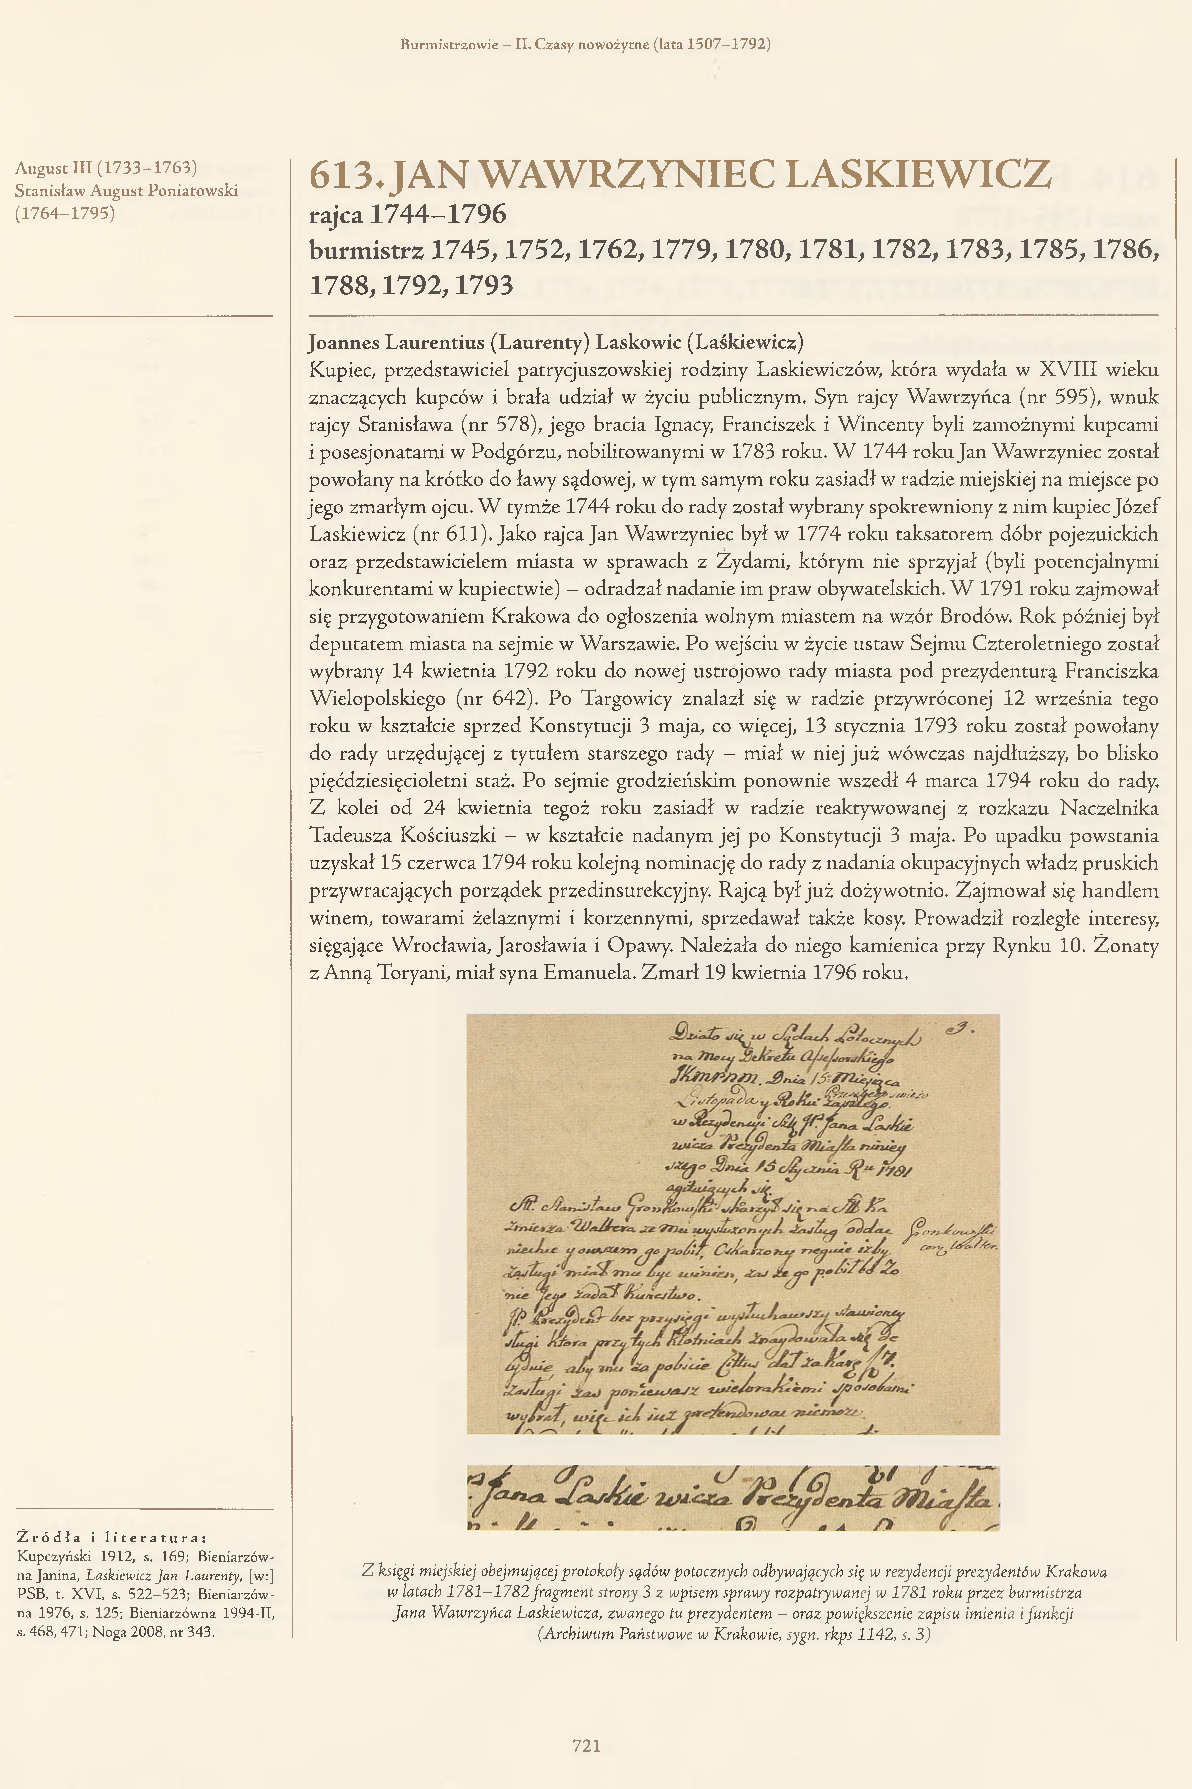 Burmistrzowie – II. Czasy nowożytne (lata 1507–1792)
August III (1733–1763)
Stanisław August Poniatowski
(1764–1795)
613. JAN WAWRZYNIEC LASKIEWICZ
rajca 1744–1796
burmistrz 1745, 1752, 1762, 1779, 1780, 1781, 1782, 1783, 1785, 1786,
1788, 1792, 1793
Joannes Laurentius (Laurenty) Laskowic (Laśkiewicz)
Kupiec, przedstawiciel patrycjuszowskiej rodziny Laskiewiczów, która wydała w XVIII wieku
znaczących kupców i brała udział w życiu publicznym. Syn rajcy Wawrzyńca (nr 595), wnuk
rajcy Stanisława (nr 578), jego bracia Ignacy, Franciszek i Wincenty byli zamożnymi kupcami
i posesjonatami w Podgórzu, nobilitowanymi w 1783 roku. W 1744 roku Jan Wawrzyniec został
powołany na krótko do ławy sądowej, w tym samym roku zasiadł w radzie miejskiej na miejsce po
jego zmarłym ojcu. W tymże 1744 roku do rady został wybrany spokrewniony z nim kupiec Józef
Laskiewicz (nr 611). Jako rajca Jan Wawrzyniec był w 1774 roku taksatorem dóbr pojezuickich
oraz przedstawicielem miasta w sprawach z Żydami, którym nie sprzyjał (byli potencjalnymi
konkurentami w kupiectwie) – odradzał nadanie im praw obywatelskich. W 1791 roku zajmował
się przygotowaniem Krakowa do ogłoszenia wolnym miastem na wzór Brodów. Rok później był
deputatem miasta na sejmie w Warszawie. Po wejściu w życie ustaw Sejmu Czteroletniego został
wybrany 14 kwietnia 1792 roku do nowej ustrojowo rady miasta pod prezydenturą Franciszka
Wielopolskiego (nr 642). Po Targowicy znalazł się w radzie przywróconej 12 września tego
roku w kształcie sprzed Konstytucji 3 maja, co więcej, 13 stycznia 1793 roku został powołany
do rady urzędującej z tytułem starszego rady – miał w niej już wówczas najdłuższy, bo blisko
pięćdziesięcioletni staż. Po sejmie grodzieńskim ponownie wszedł 4 marca 1794 roku do rady.
Z kolei od 24 kwietnia tegoż roku zasiadł w radzie reaktywowanej z rozkazu Naczelnika
Tadeusza Kościuszki – w kształcie nadanym jej po Konstytucji 3 maja. Po upadku powstania
uzyskał 15 czerwca 1794 roku kolejną nominację do rady z nadania okupacyjnych władz pruskich
przywracających porządek przedinsurekcyjny. Rajcą był już dożywotnio. Zajmował się handlem
winem, towarami żelaznymi i korzennymi, sprzedawał także kosy. Prowadził rozległe interesy,
sięgające Wrocławia, Jarosławia i Opawy. Należała do niego kamienica przy Rynku 10. Żonaty
z Anną Toryani, miał syna Emanuela. Zmarł 19 kwietnia 1796 roku.
3.
Działo się w Sądach Potocznych
na Mocy Dekretu Assessorskiego
JKMPNM. Dnia 15 Miesiąca
Listopada y Roku
w Rezydencyi Jana Laskie
wicza Prezydenta Miasta niniey
szego Dnia 15 Stycznia Ru 1781
agituiących się.
Stanisław Gronkowski skarzył się na Ka
źmierza Waltera ze mu wysłuzonych zasług oddac
niechce y owszem go pobił, Oskarzony neguie izby
zasługi miał mu byc winien, zas ze go pobił bo Zo
nie Jego zadał Kurestwo.
Gronkowski
Prezydent bez przysięgi wysłuchawszy stawioney
sługi ktora przy tych kłotniach znaydowała się
aby mu za pobicie dał za karę
zasługi zas poniewasz wielorakiemi sposobami
wybrał, więc ich iuz pretendowac niemoze.
Jana Laskie wicza Prezydenta Miasta
Z księgi miejskiej obejmującej protokoły sądów potocznych odbywających się w rezydencji prezydentów Krakowa
w latach 1781–1782 fragment strony 3 z wpisem sprawy rozpatrywanej w 1781 roku przez burmistrza
Jana Wawrzyńca Laskiewicza, zwanego tu prezydentem – oraz powiększenie zapisu imienia i funkcji
(Archiwum Państwowe w Krakowie, sygn. rkps 1142, s. 3)
Źródła i literatura:
Kupczyński 1912, s. 169; Bieniarzów-
na Janina, Laskiewicz Jan Laurenty, [w:]
PSB, t. XVI, s. 522–523; Bieniarzów-
na 1976, s. 125; Bieniarzówna 1994-II,
s. 468, 471; Noga 2008, nr 343.
721